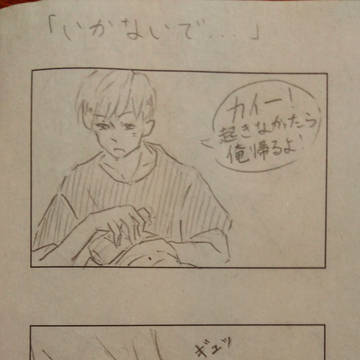 「いかないで…」
カイー！
起きなかったら
俺帰るよ！
ギュッ